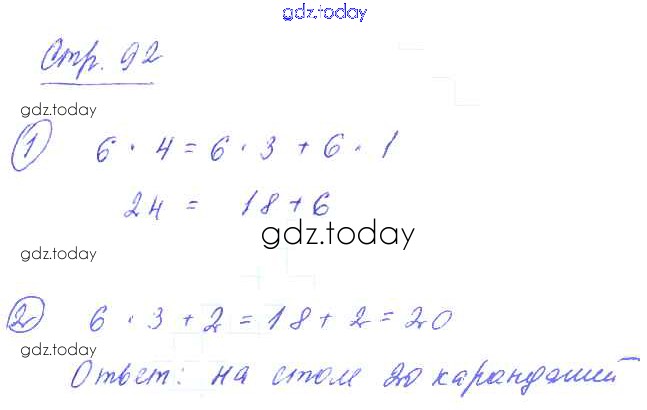 gdz.today
Стр. 92
gdz.today
1 6 · 4 = 6 · 3 + 6 · 1
24 = 18 + 6
gdz.today
gdz.today
2 6 · 3 + 2 = 18 + 2 = 20
gdz.today
Ответ: на стол 20 карандашей
gdz.today